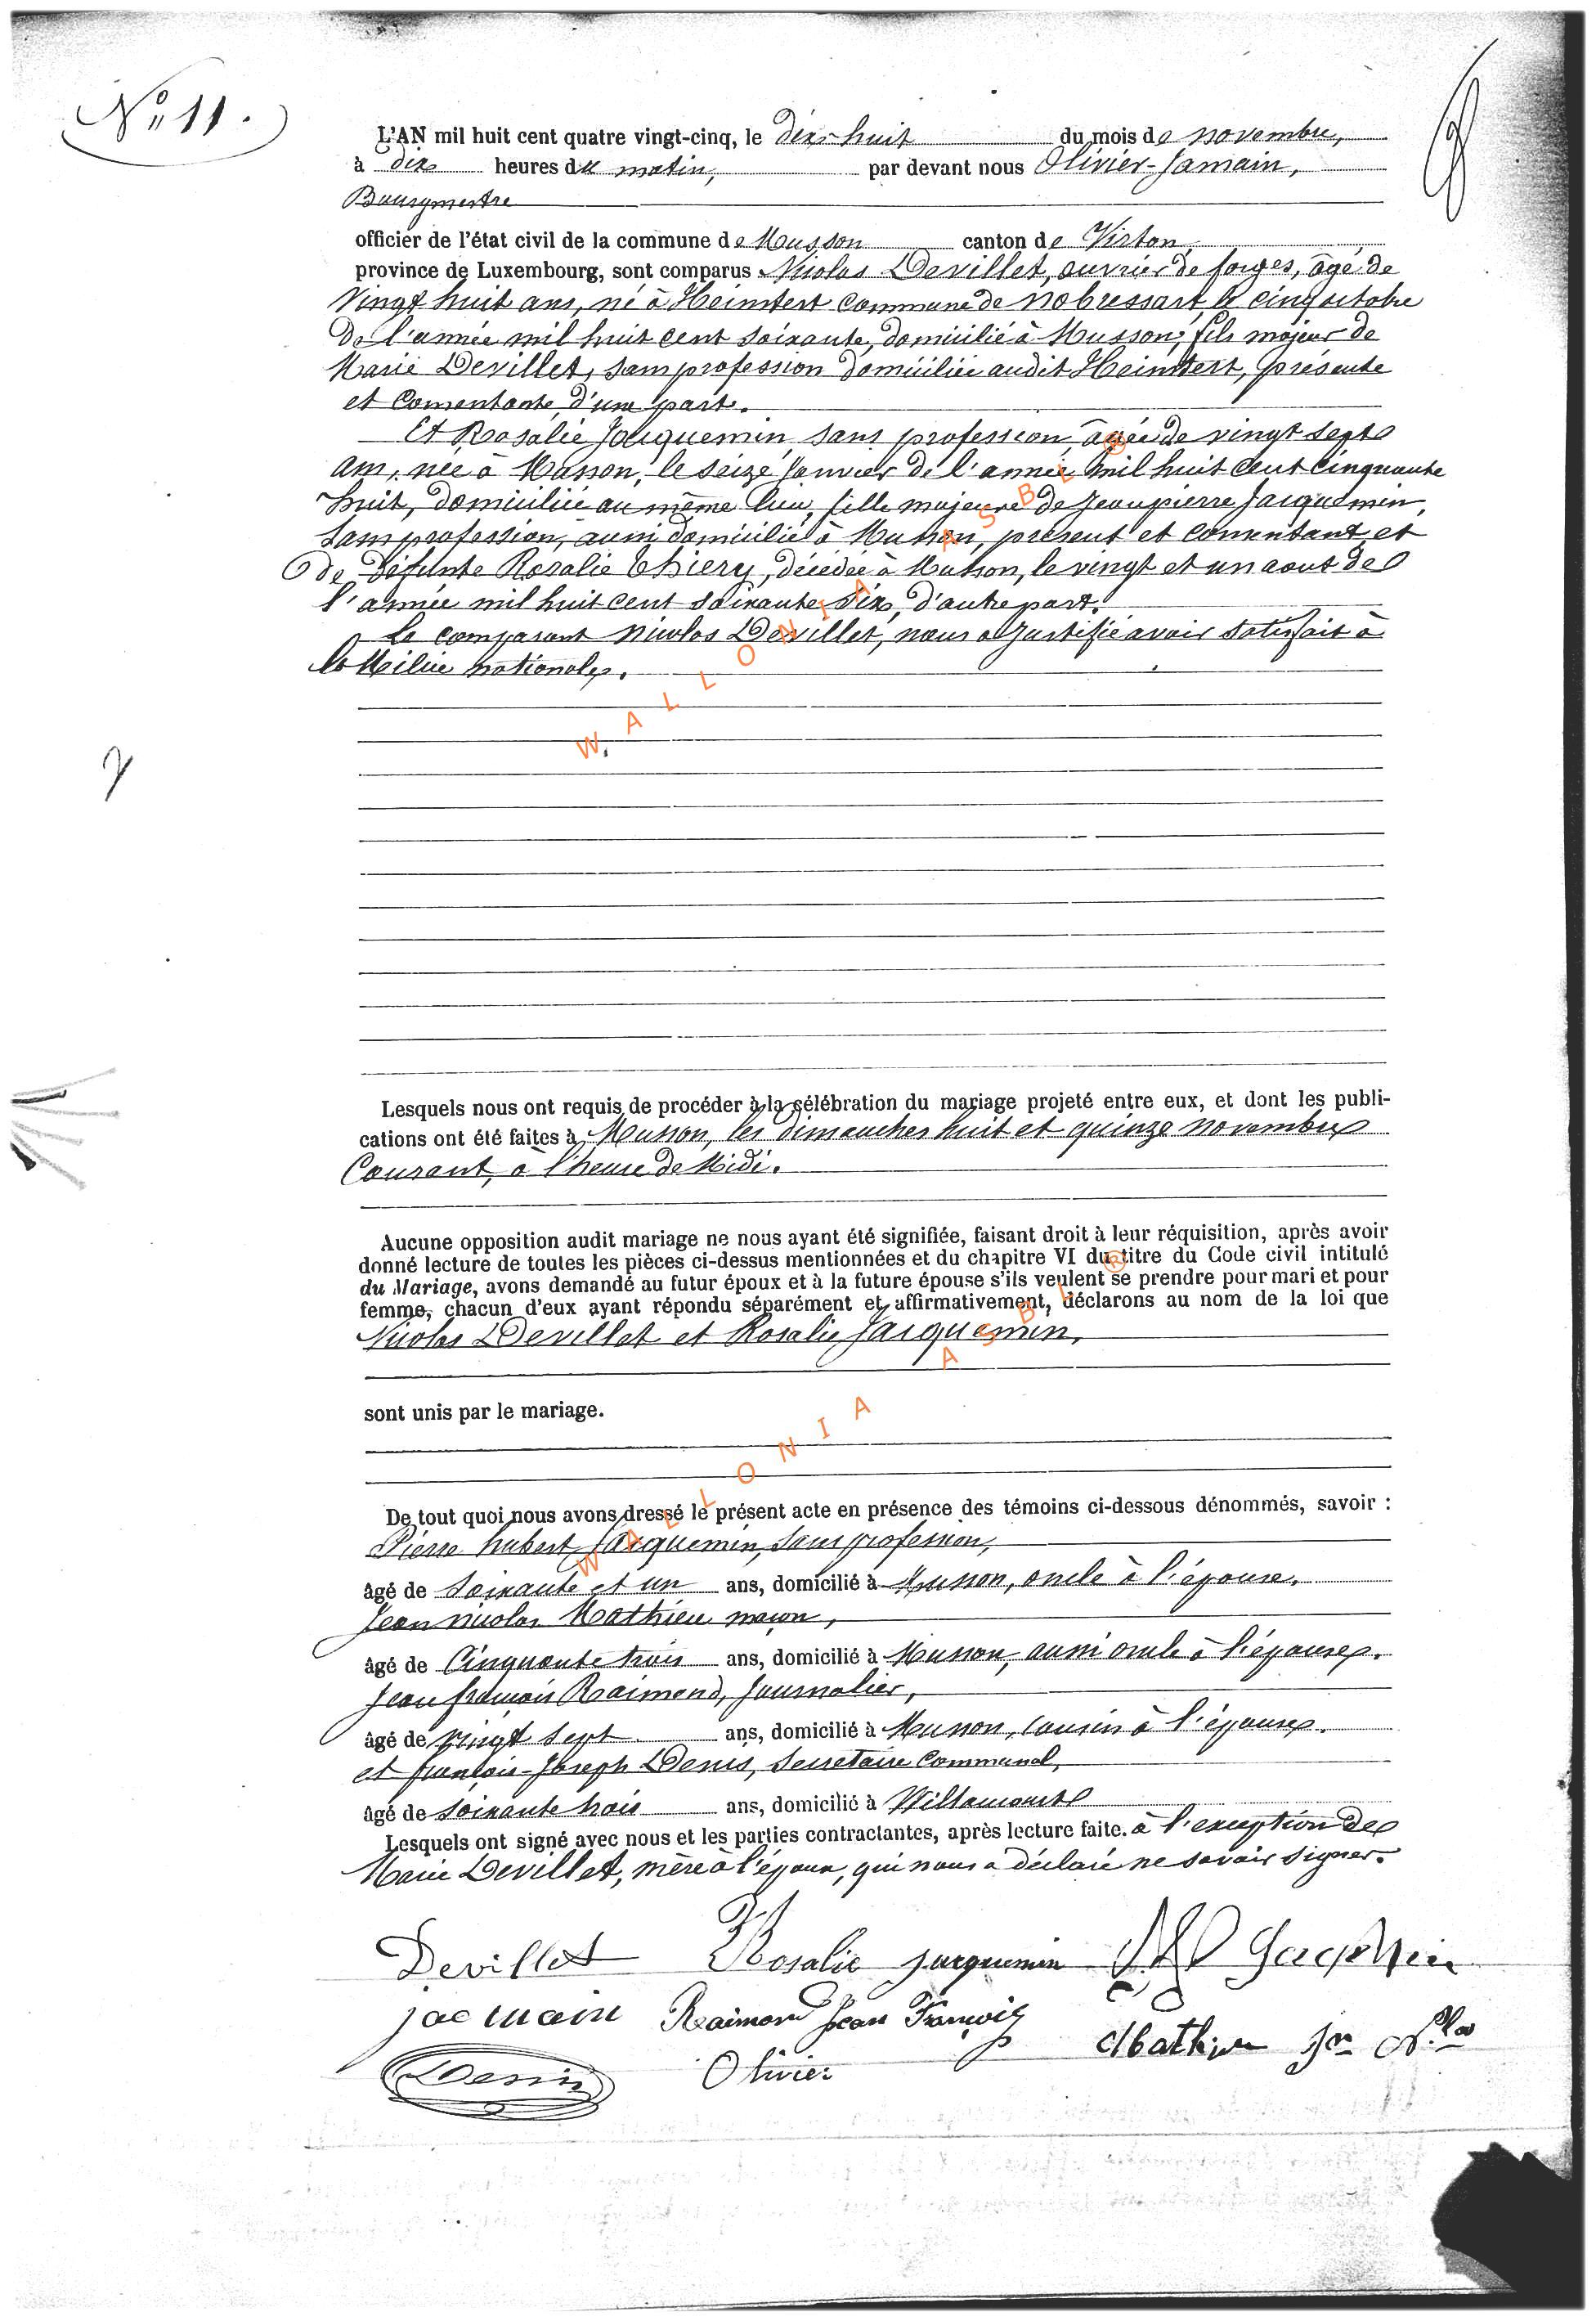 N° 11.
L'AN mil huit cent quatre vingt-cinq, le dix-huit du mois de novembre,
à dix heures du matin, par devant nous Olivier-Jamain,
Bourgmestre
officier de l'état civil de la commune de Musson canton de Virton,
province de Luxembourg, sont comparus Nicolas Devillet, ouvrier de forges, âgé de
Vingt huit ans, né à Heinstert commune de nobressart, le cinq octobre
De l'année mil huit cent soixante, domicilié à Musson, fils majeur de
Marie Devillet, sans profession domiciliée audit Heinstert, présente
et consentante, d'une part.
Et Rosalie Jacquemin, sans profession, âgée de vingt sept
ans, née à Musson, le seize Janvier de l'année mil huit cent cinquante
huit, domiciliée au même lieu, fille majeure de Jeanpierre Jacquemin,
sans profession, aussi domicilié à Musson, présent et consentant, et
de défunte Rosalie Thiery, décédée à Musson, le vingt et un aout de
l'année mil huit cent soixante dix, d'autre part.
Le comparant Nicolas Devillet, nous a Justifié avoir satisfait à
la Milice nationale.
WALLONIA ASBL ®
Lesquels nous ont requis de procéder à la célébration du mariage projeté entre eux, et dont les publi-
cations ont été faites à Musson, les dimanches huit et quinze novembre
Courant, à l'heure de Midi.
Aucune opposition audit mariage ne nous ayant été signifiée, faisant droit à leur réquisition, après avoir
donné lecture de toutes les pièces ci-dessus mentionnées et du chapitre VI du titre du Code civil intitulé
du Mariage, avons demandé au futur époux et à la future épouse s'ils veulent se prendre pour mari et pour
femme, chacun d'eux ayant répondu séparément et affirmativement, déclarons au nom de la loi que
Nicolas Devillet et Rosalie Jacquemin,
sont unis par le mariage.
WALLONIA ASBL ®
De tout quoi nous avons dressé le présent acte en présence des témoins ci-dessous dénommés, savoir :
Pierre hubert Jacquemin, sans profession,
âgé de soixante et un ans, domicilié à Musson, oncle à l'épouse.
Jean nicolas Mathieu maçon,
âgé de Cinquante trois ans, domicilié à Musson, aussi oncle à l'épouse.
Jean françois Raimond, Journalier,
âgé de vingt sept ans, domicilié à Musson, cousin à l'épouse.
et françois-Joseph Denis, secretaire Communal,
âgé de soixante trois ans, domicilié à Willancourt
Lesquels ont signé avec nous et les parties contractantes, après lecture faite. à l'exception de
Marie Devillet, mère à l'époux, qui nous a déclaré ne savoir signer.
Devillet Rosalie Jacquemin
jacmain Raimond Jean François Mathieu Jn Nlas
Denis Olivier